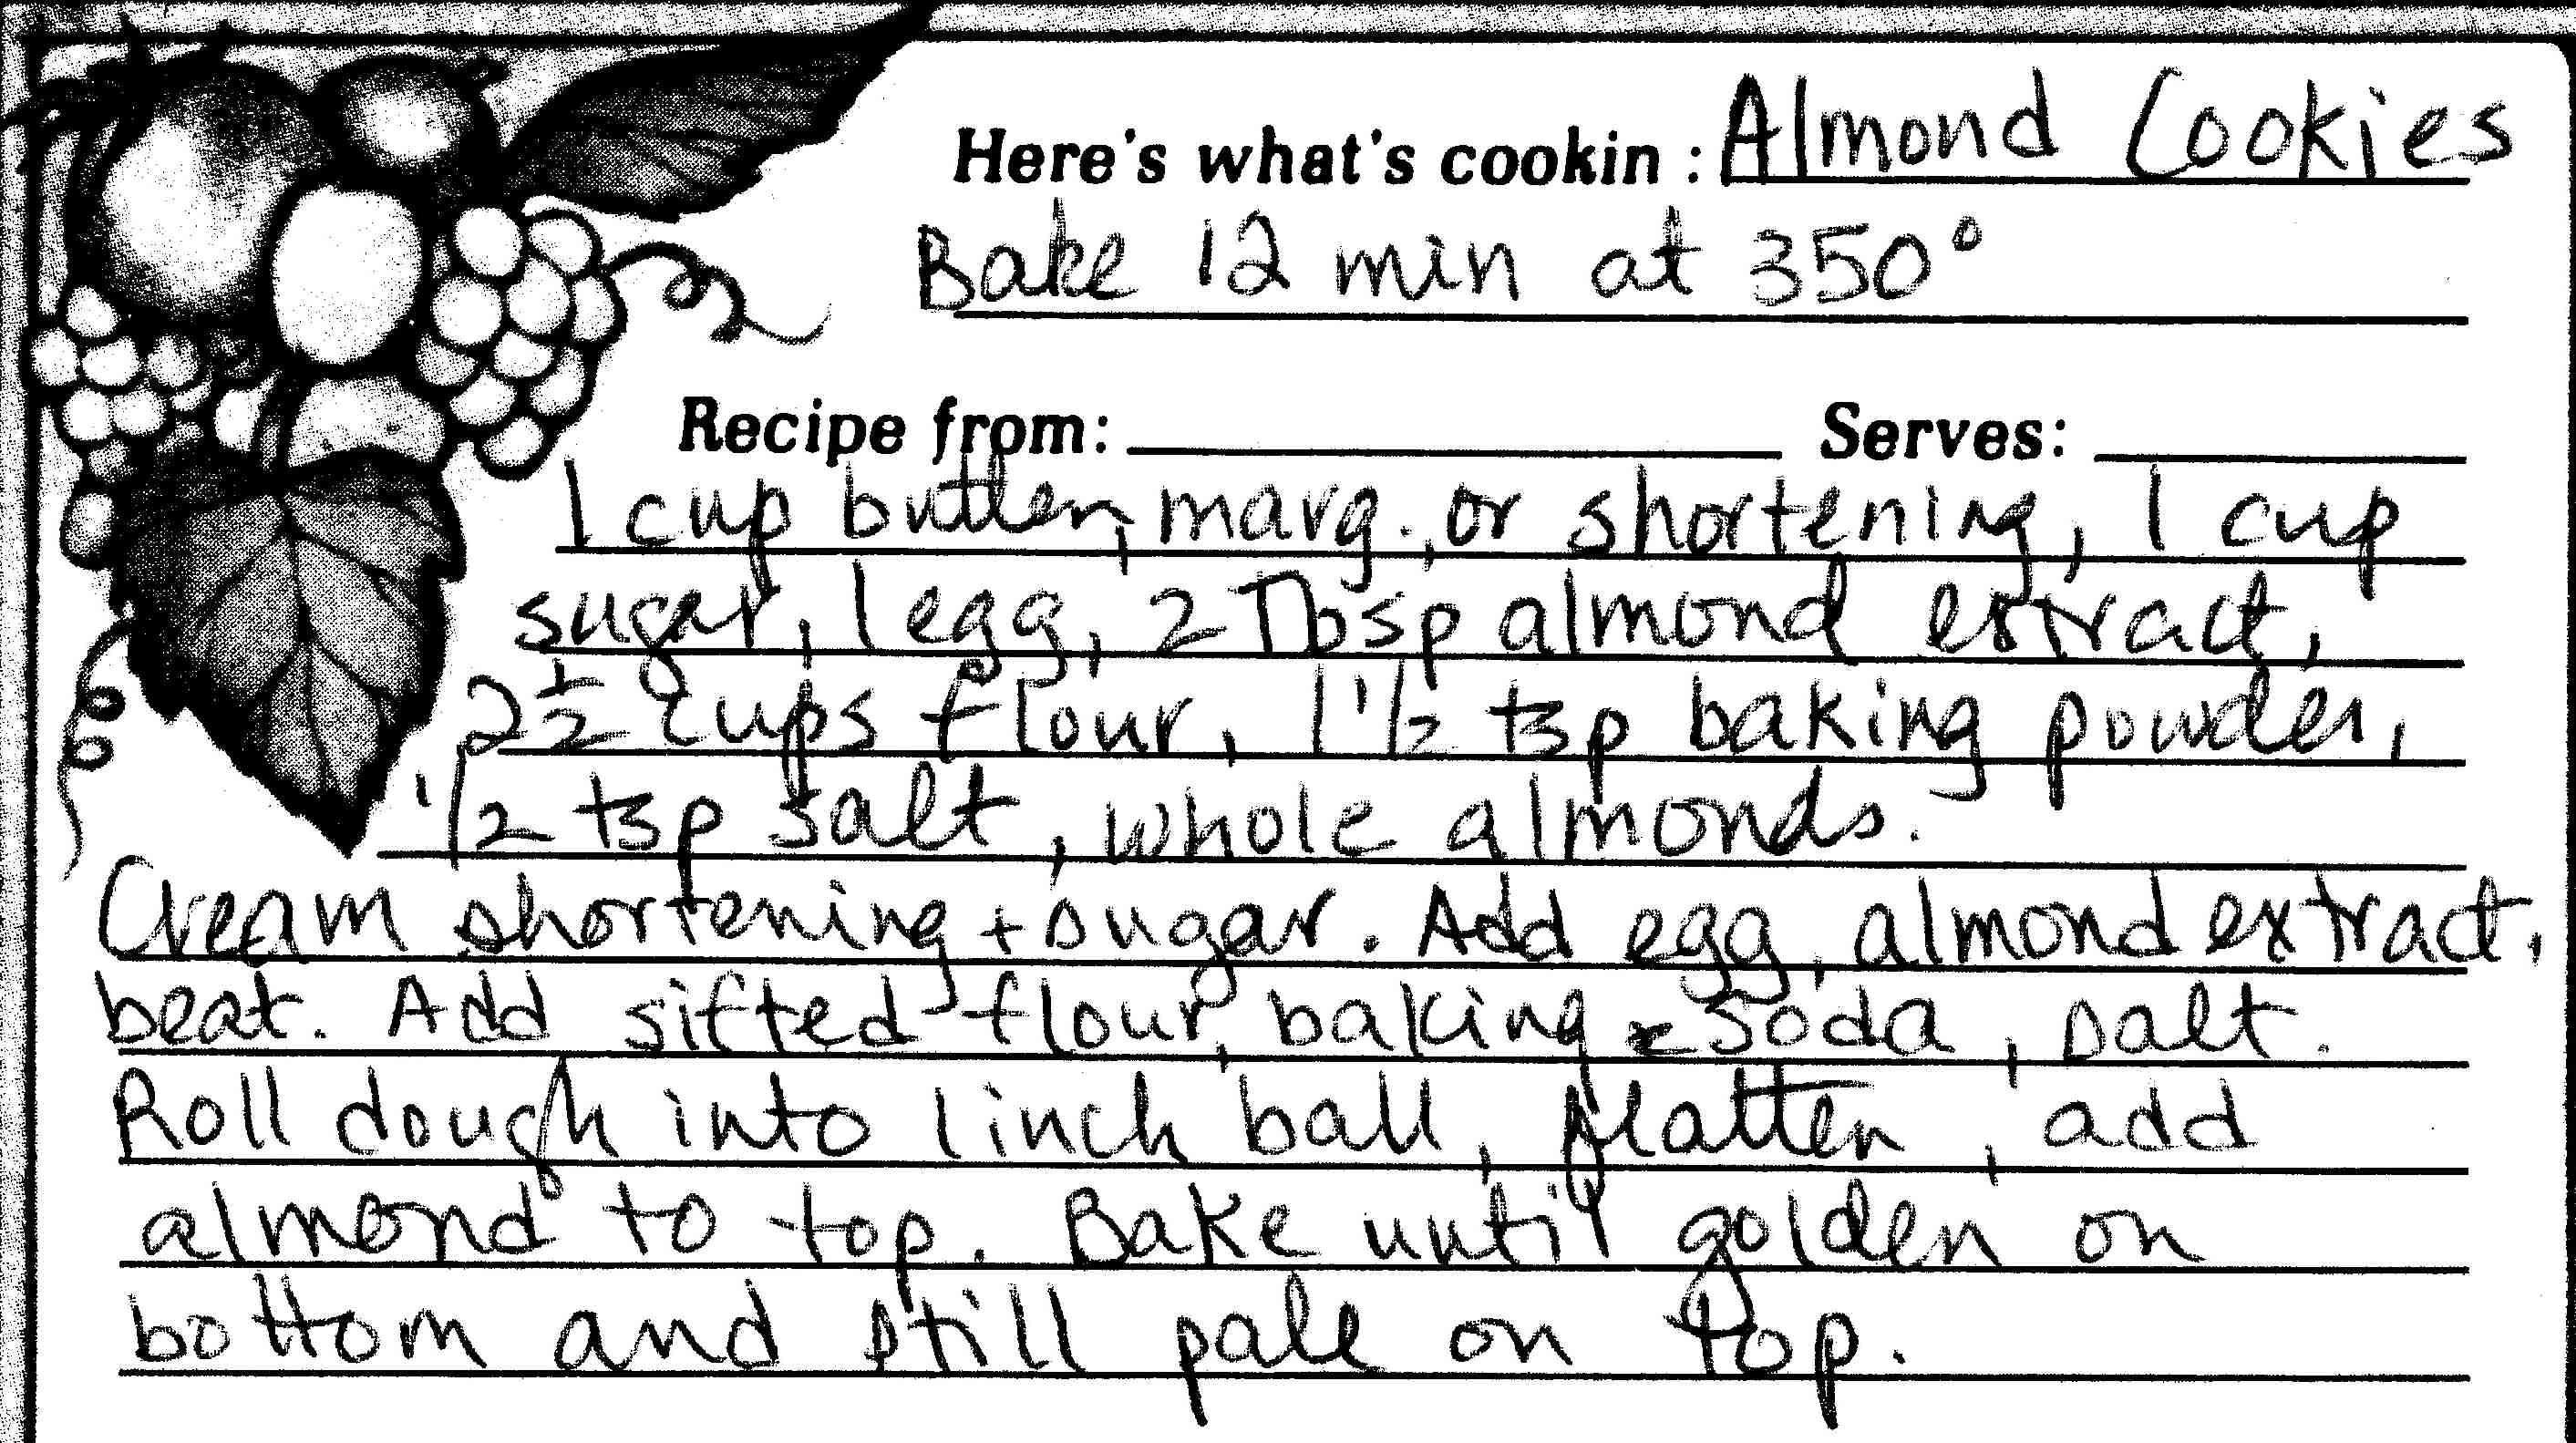 Here's what's cookin : Almond Cookies
Bake 12 min at 350°
Recipe from: Serves:
1 cup butter, marg., or shortening, 1 cup
sugar, 1 egg, 2 Tbsp almond extract,
2 1/2 cups flour, 1 1/2 tsp baking powder,
1/2 tsp salt, whole almonds.
Cream shortening + sugar. Add egg, almond extract,
beat. Add sifted flour, baking soda, salt.
Roll dough into 1 inch ball, flatten, add
almond to top. Bake until golden on
bottom and still pale on top.